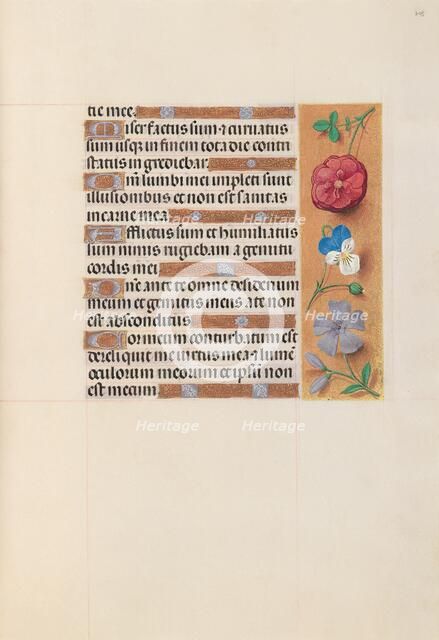 tie mee.
Miser factus sum et curuatus
sum usqz in finem tota die contri
status ingrediebar.
Qm lumbi mei impleti sunt
illusionibus et non est sanitas
in carne mea.
Afflictus sum et humiliatus
sum nimis rugiebam a gemitu
cordis mei
Dne ante te omne desiderium
meum et gemitus meus a te non
est absconditus
Cor meum conturbatum est
dereliquit me uirtus mea et lumē
oculorum meorum et ipsū non
est mecum
Heritage
Heritage
Heritage
Heritage
Heritage
Heritage